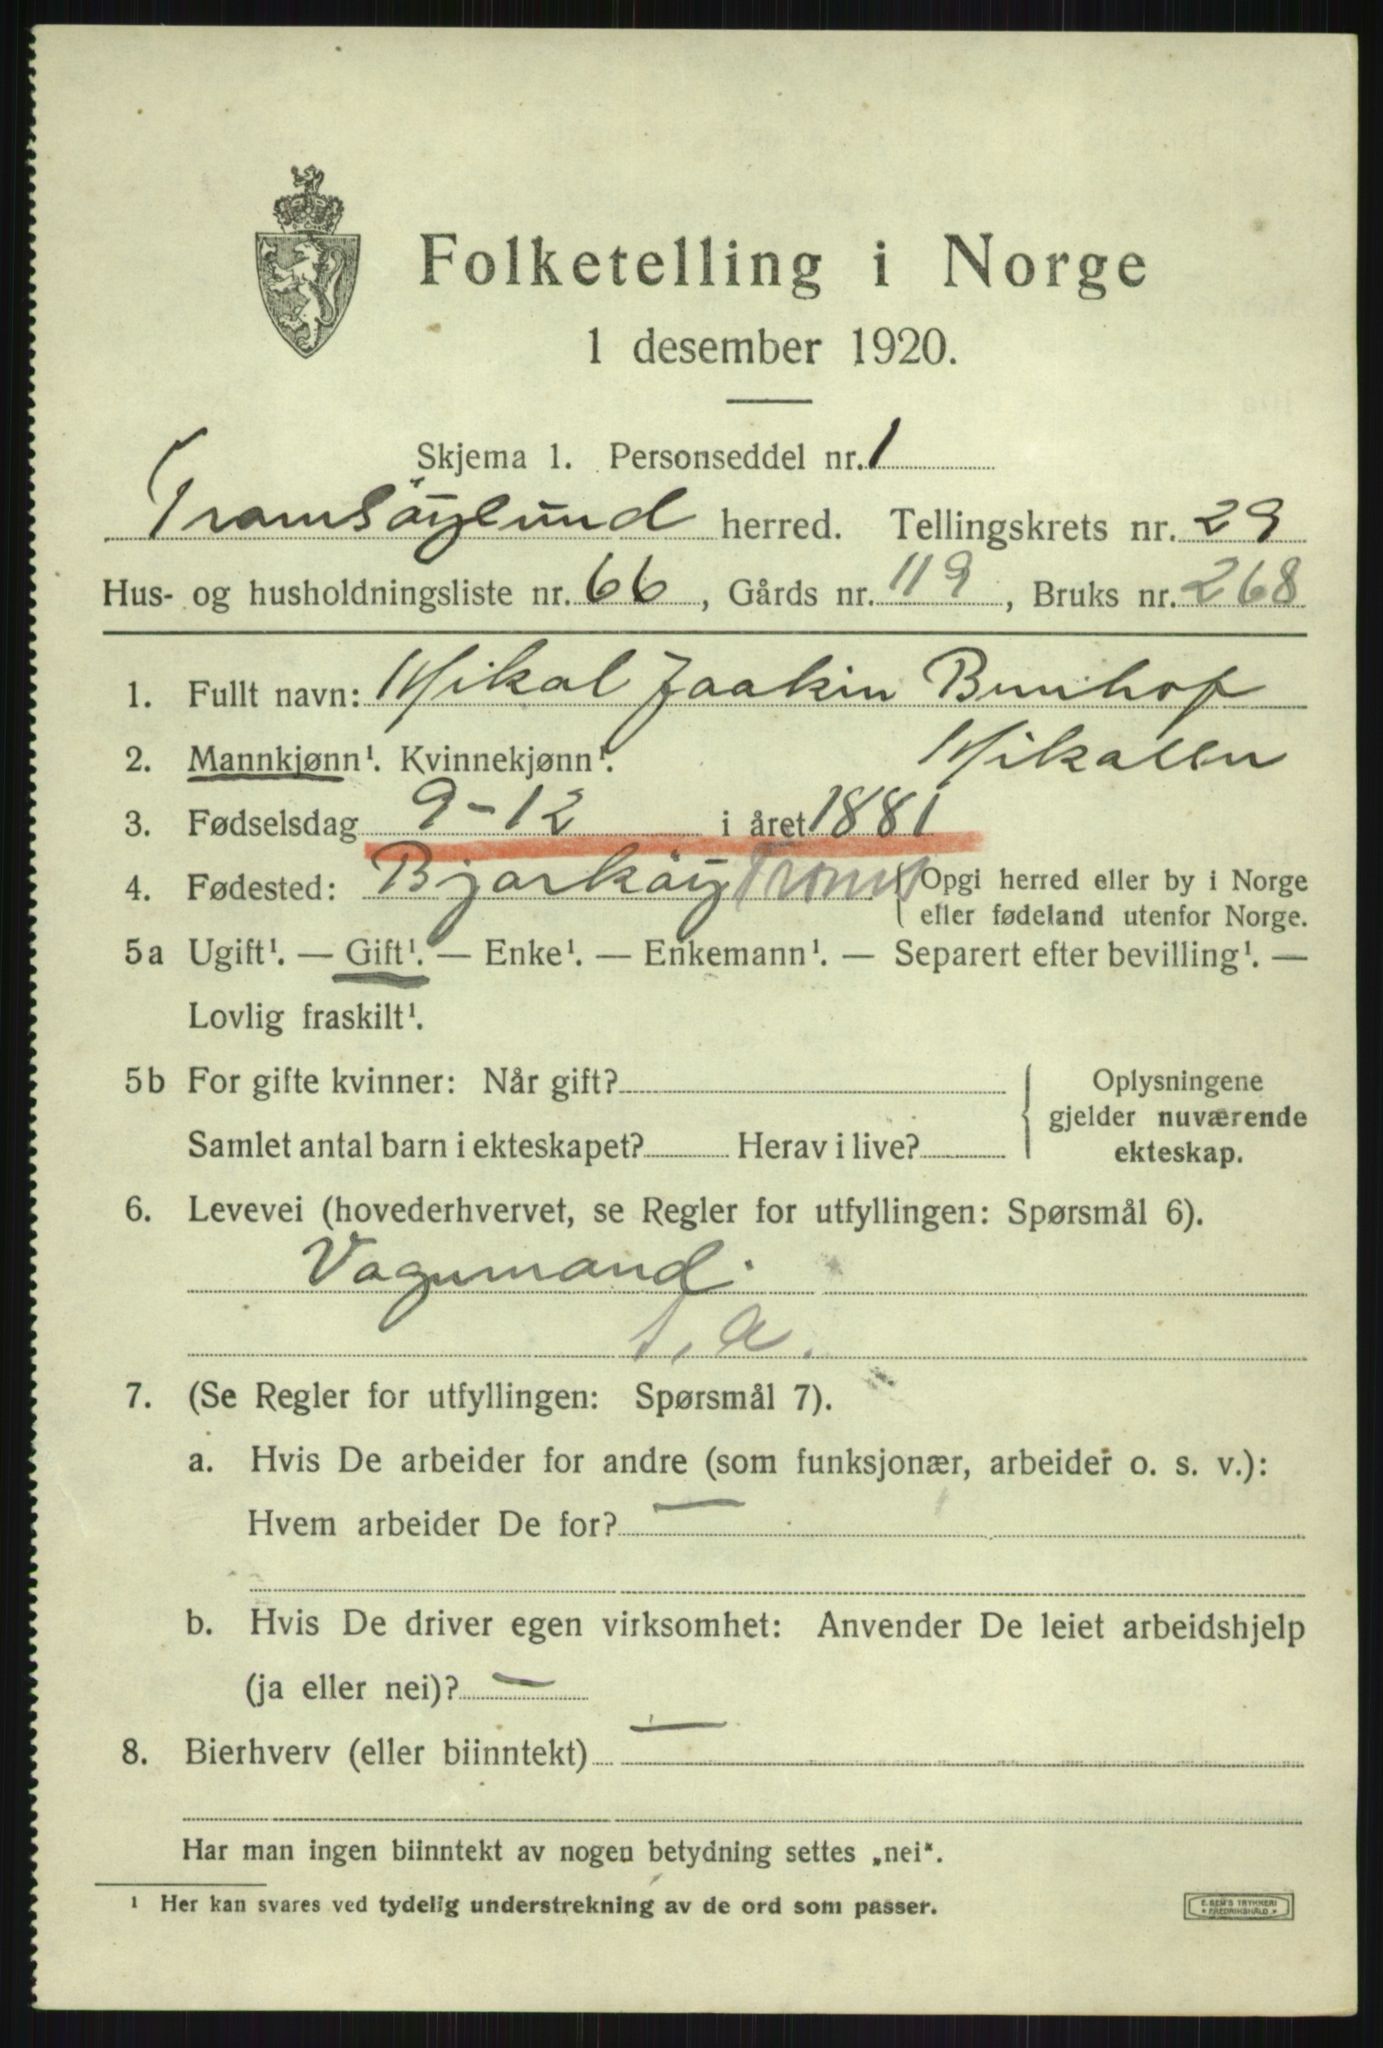 Folketelling i Norge
1 desember 1920.
Skjema 1. Personseddel nr. 1
Tromsöysund herred. Tellingskrets nr. 29
Hus- og husholdningsliste nr. 66, Gårds nr. 119, Bruks nr. 268
1. Fullt navn: Mikal Joakin
Mikalsen
2. Mannkjønn¹. Kvinnekjønn¹.
3. Fødselsdag 9-12 i året 1881
4. Fødested: Bjarköy Troms { Opgi herred eller by i Norge
eller fødeland utenfor Norge.
5a Ugift¹. — Gift¹. — Enke¹. — Enkemann¹. — Separert efter bevilling¹. —
Lovlig fraskilt¹.
5b For gifte kvinner: Når gift?
Samlet antal barn i ekteskapet? Herav i live?
Oplysningene
gjelder nuværende
ekteskap.
6. Levevei (hovederhvervet, se Regler for utfyllingen: Spørsmål 6).
Vognmand.
s. a.
7. (Se Regler for utfyllingen: Spørsmål 7).
a. Hvis De arbeider for andre (som funksjonær, arbeider o. s. v.):
Hvem arbeider De for? —
b. Hvis De driver egen virksomhet: Anvender De leiet arbeidshjelp
(ja eller nei)? —
8. Bierhverv (eller biinntekt) —
Har man ingen biinntekt av nogen betydning settes „nei".
¹ Her kan svares ved tydelig understrekning av de ord som passer.
E. SEM'S TRYKKERI
FREDRIKSHALD